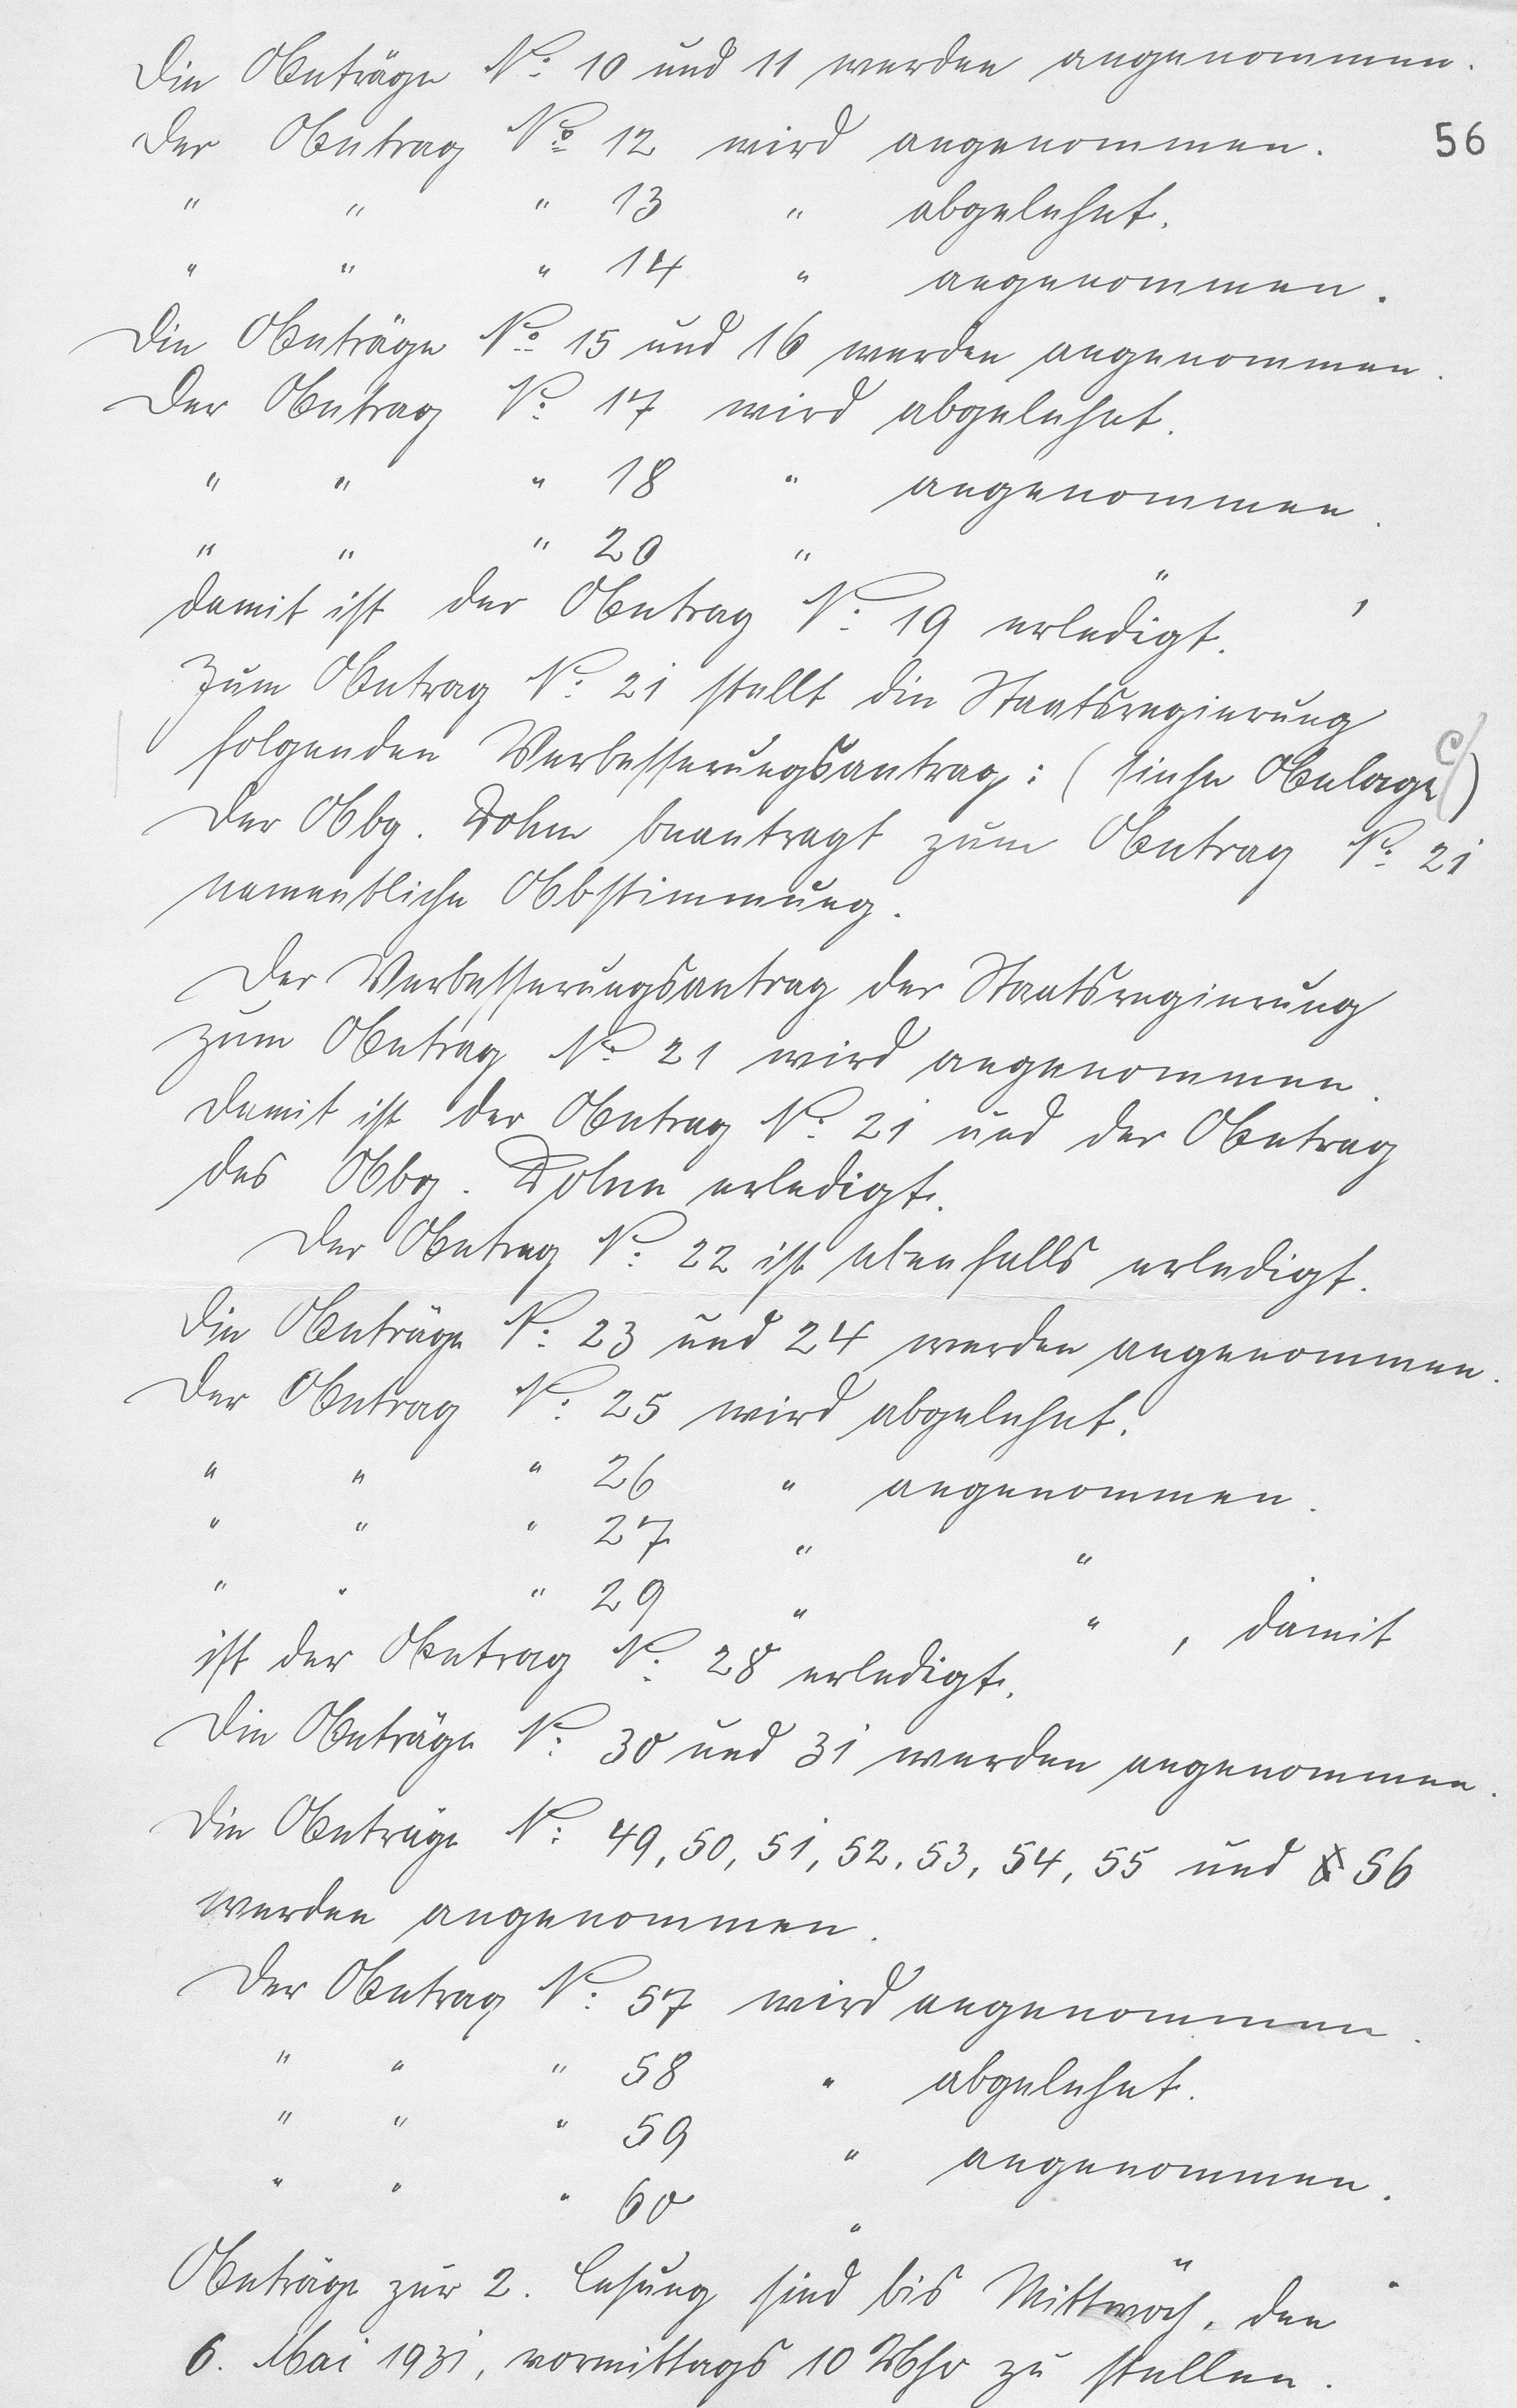 Die Anträge №: 10 und 11 werden angenommen.
Der Antrag № 12 wird angenommen. 56
" " " 13 " abgelehnt.
" " " 14 " angenommen.
Die Anträge № 15 und 16 werden angenommen.
Der Antrag №: 17 wird abgelehnt.
" " " 18 " angenommen.
" " " 20 " " ,
damit ist der Antrag №: 19 erledigt.
Zum Antrag №: 21 stellt die Staatsregierung
folgenden Verbesserungsantrag: (siehe Anlage C)
Der Abg. Dohm beantragt zum Antrag №: 21
namentliche Abstimmung.
Der Verbesserungsantrag der Staatsregierung
zum Antrag №: 21 wird angenommen.
Damit ist der Antrag №: 21 und der Antrag
des Abg. Dohm erledigt.
Der Antrag №: 22 ist ebenfalls erledigt.
Die Anträge №: 23 und 24 werden angenommen.
Der Antrag №: 25 wird abgelehnt.
" " " 26 " angenommen.
" " " 27 " "
" " " 29 " " , damit
ist der Antrag №: 28 erledigt.
Die Anträge №: 30 und 31 werden angenommen.
Die Anträge №: 49, 50, 51, 52, 53, 54, 55 und 56
werden angenommen.
Der Antrag №: 57 wird angenommen.
" " " 58 " abgelehnt.
" " " 59 " angenommen.
" " " 60 " " .
Anträge zur 2. Lesung sind bis Mittwoch, den
6. Mai 1931, vormittags 10 Uhr zu stellen.